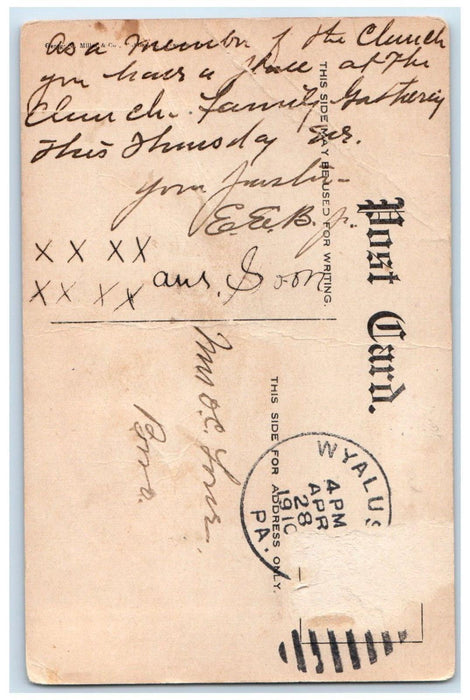 As a member of the Church
you have a place at the
Church Family Gathering
This Thursday Eve.
your pastor
E.E.B. Jr.
X X XX
XX XX
ans. Soon
THIS SIDE MAY BE USED FOR WRITING.
Post Card.
THIS SIDE FOR ADDRESS ONLY.
Mrs
WYALUS
4PM
APR
28
1910
PA.